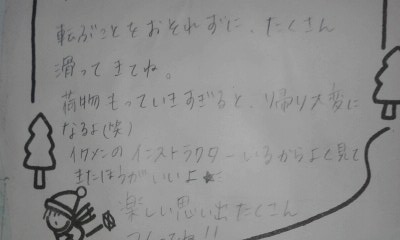 転ぶことをおそれずに、たくさん
滑ってきてね。
荷物もっていきすぎると、帰り大変に
なるよ(笑)
イケメンのインストラクターいるからよく見て
きたほうがいいよ★
楽しい思い出たくさん
つくってね!!